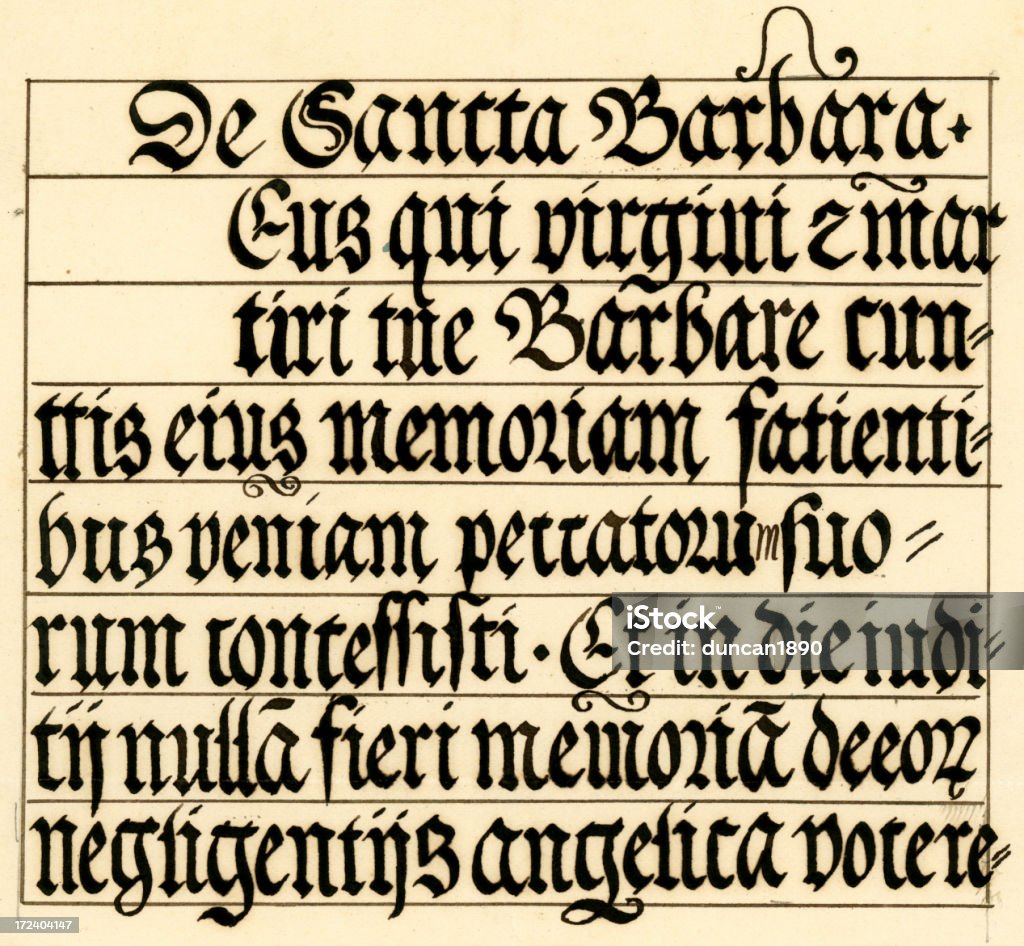 De Sancta Barbara.
Eus qui virgini ⁊ mar
tiri tue Barbare cun=
ctis eius memoriam facienti=
bus veniam peccatorum suo=
rum concessisti. Et in die iudi=
cij nullā fieri memoriā de eoꝝ
negligentijs angelica voce re=
iStock™
duncan1890
172404147